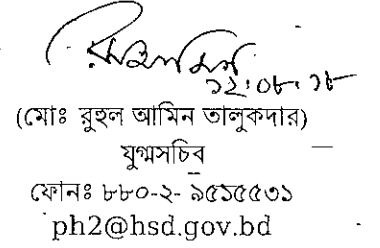 ১২.০৮.১৮
(মোঃ রুহুল আমিন তালুকদার)
যুগ্মসচিব
ফোনঃ ৮৮০-২- ৯৫১৫৫৩১
ph2@hsd.gov.bd